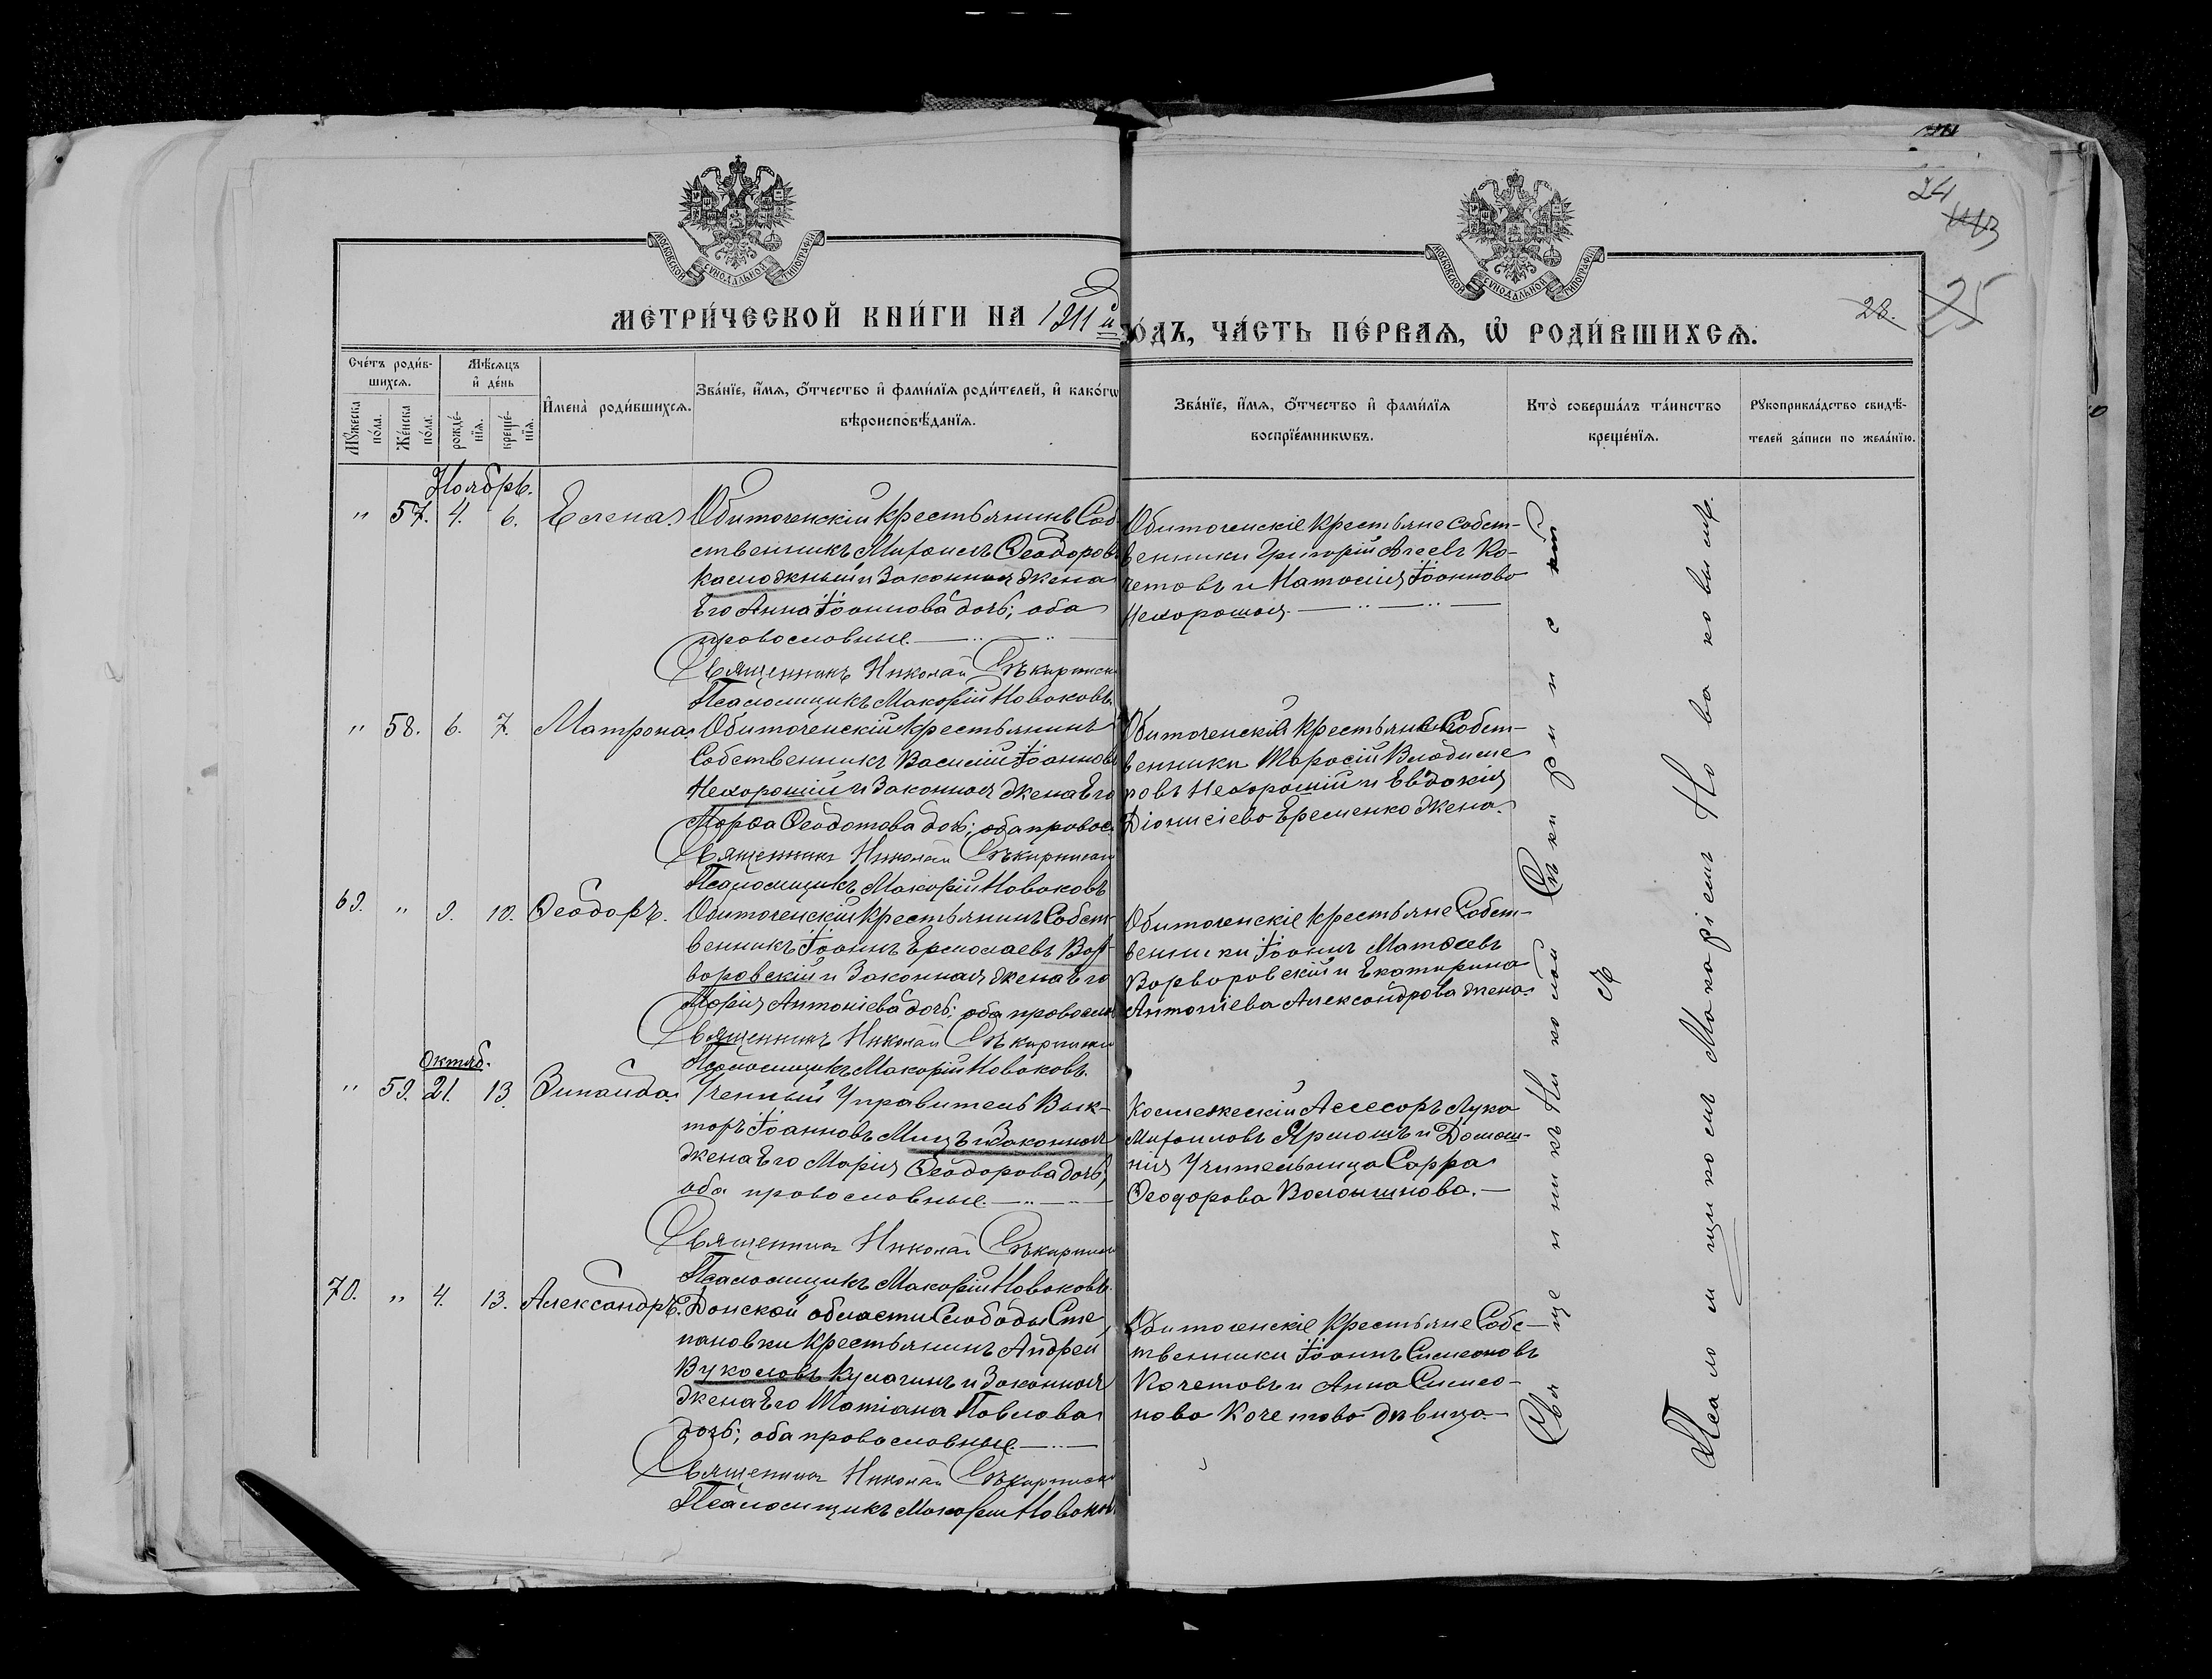 24
28.
25
МОСКОВСКОЙ СУНОДАЛЬНОЙ ТИПОГРАФІИ
МОСКОВСКОЙ СУНОДАЛЬНОЙ ТИПОГРАФІИ
МЕТРИ́ЧЕСКОЙ КНИ́ГИ НА 1911 й
ГО́ДЪ, ЧА́СТЬ ПЕ́РВАѦ, Ѡ҆ РОДИ́ВШИХСѦ.
Сче́тъ роди́вшихсѧ.
Мꙋ́жеска по́ла.
Же́нска по́ла.
Мѣ́сѧцъ и҆ де́нь
рожде́нїѧ.
креще́нїѧ.
И҆мена̀ роди́вшихсѧ.
Зва́нїе, и҆́мѧ, ѻ҆́тчество и҆ фами́лїѧ роди́телей, и҆ како́гѡ
вѣроисповѣ́данїѧ.
Зва́нїе, и҆́мѧ, ѻ҆́тчество и҆ фами́лїѧ
воспрїе́мникѡвъ.
Кто̀ соверша́лъ та́инство
креще́нїѧ.
Рꙋкоприкла́дство свидѣ́-
телей за́писи по жела́нїю.
Ноябрь.
" 57. 4. 6. Елена
Обиточенскій крестьянинъ Соб-
ственникъ Михаилъ Ѳеодоровъ
Каложный и законная жена
Его Анна Іоаннова дочь; оба
православные.
Священникъ Николай Сѣкирскій
Псаломщикъ Макарій Новаковъ.
Обиточенскіе крестьяне собст-
венники Григорій Агеевъ Ко-
четовъ и Наталія Іоаннова
Нехорошая.
" 58. 6. 7. Матрона
Обиточенскій крестьянинъ
Собственникъ Василій Іоанновъ
Нехорошій и законная жена Его
Марѳа Ѳеодотова дочь; оба правос.
Священникъ Николай
Псаломщикъ Макарій Новаковъ
Обиточенскія крестьяне Собст-
венники Тарасій Владиме
ровъ Нехорошій и Евдокія
Діонисіева Еременко жена.
69. " 9. 10. Ѳеодоръ.
Обиточенскій крестьянинъ Собст-
венникъ Іоаннъ Ермолаевъ Вар-
варовскій и законная жена Его
Марія Антоніева дочь; оба правосл
Священникъ Николай
Псаломщикъ Макарій Новаковъ.
Обиточенскіе крестьяне Собст-
венники Іоаннъ Матѳеевъ
Варваровскій и Екатерина
Антоніева Александрова жена.
Октяб.
" 59. 21. 13. Зинаида.
Ученный Управитель Вик-
торъ Іоанновъ Мицъ и законная
жена Его Марія Ѳеодорова дочь;
оба православные.
Священникъ Николай
Псаломщикъ Макарій Новаковъ.
Коллежескій Асессоръ Лука
Михаиловъ Ярмошъ и Домаш-
няя Учительница Сарра
Ѳеодорова
70. " 4. 13. Александръ.
Донской области Слободы Сте
пановки крестьянинъ Андрей
Вуколовъ Кулагинъ и законная
жена Его Татіана Павлова
дочь; оба православные.
Священникъ Николай
Псаломщикъ Макарій Новаковъ
Обиточенскіе крестьяне Собс-
твенники Іоаннъ Симеоновъ
Кочетовъ и Анна Симео-
нова Кочетова дѣвица.
Священникъ Николай
съ
Псаломщикомъ Макаріемъ Новаковымъ.